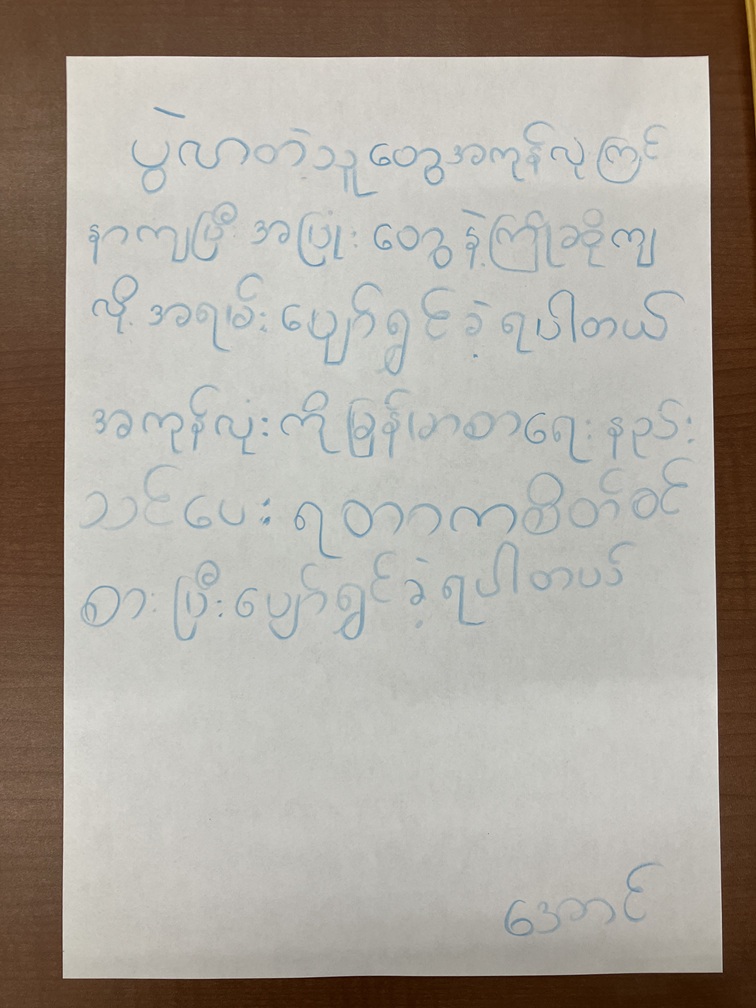 ပွဲလာတဲ့သူတွေအကုန်လုံးကြင်
နာကျပြီး အပြုံး တွေနဲ့ကြိုဆိုကျ
လို့ အရမ်းပျော်ရွှင်ခဲ့ရပါတယ်
အကုန်လုံးကိုမြန်မာစာရေးနည်း
သင်ပေးရတာကစိတ်ဝင်
စားပြီးပျော်ရွှင်ခဲ့ရပါတယ်
အောင်